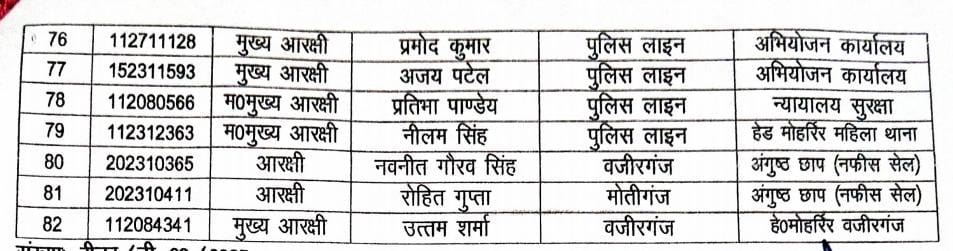 76 112711128 मुख्य आरक्षी प्रमोद कुमार पुलिस लाइन अभियोजन कार्यालय
77 152311593 मुख्य आरक्षी अजय पटेल पुलिस लाइन अभियोजन कार्यालय
78 112080566 म0मुख्य आरक्षी प्रतिभा पाण्डेय पुलिस लाइन न्यायालय सुरक्षा
79 112312363 म0मुख्य आरक्षी नीलम सिंह पुलिस लाइन हेड मोहर्रिर महिला थाना
80 202310365 आरक्षी नवनीत गौरव सिंह वजीरगंज अंगुष्ठ छाप (नफीस सेल)
81 202310411 आरक्षी रोहित गुप्ता मोतीगंज अंगुष्ठ छाप (नफीस सेल)
82 112084341 मुख्य आरक्षी उत्तम शर्मा वजीरगंज हे0मोहर्रिर वजीरगंज